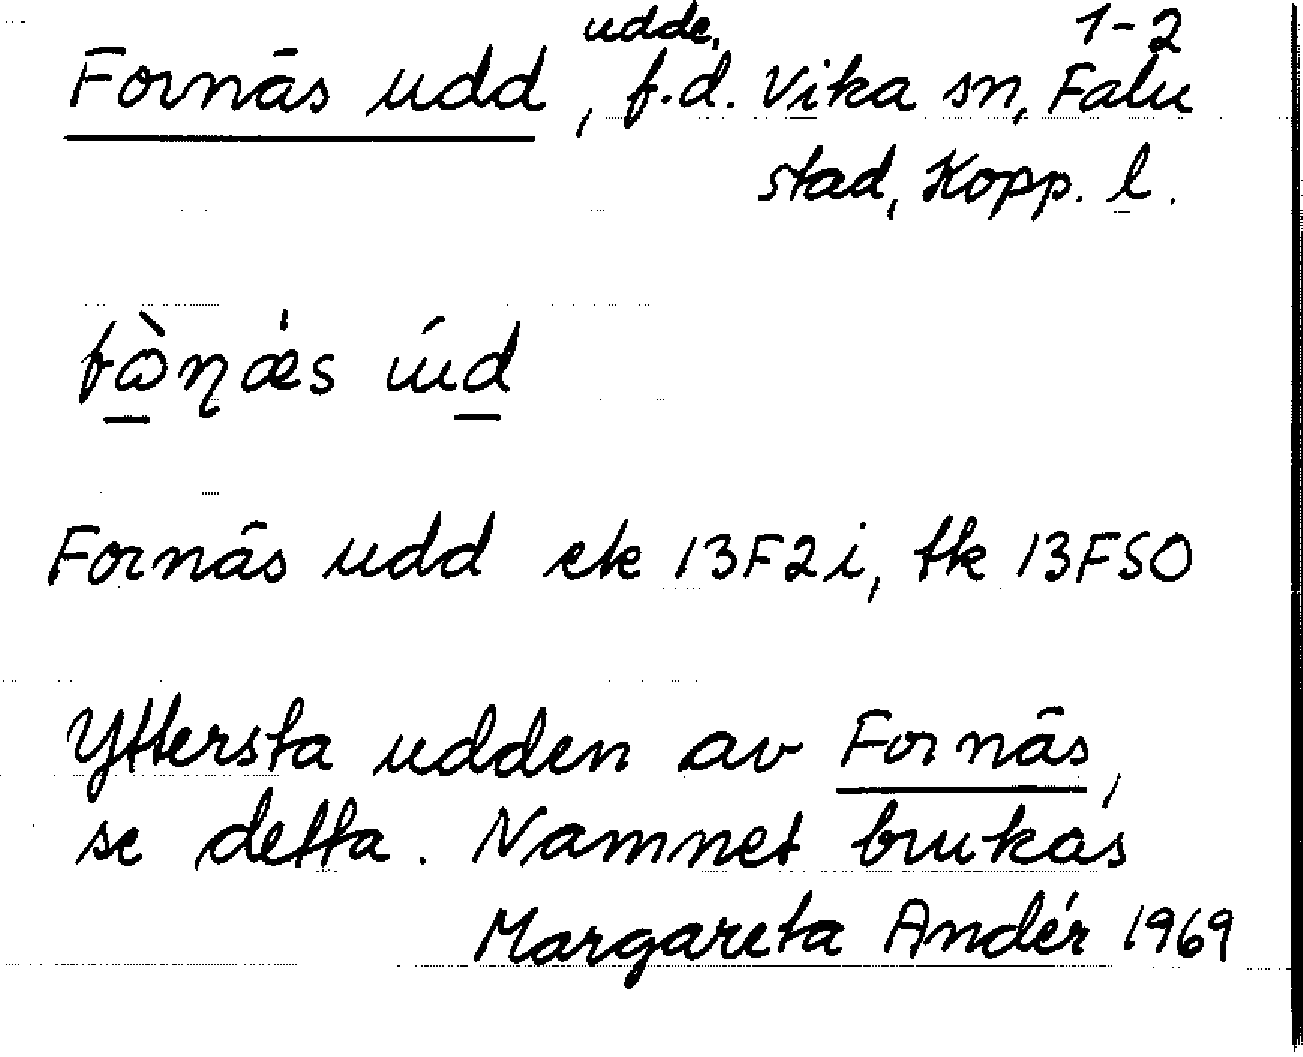 udde, 1-2
Fornäs udd, f.d. Vika sn, Falu
stad, Kopp. l.
Fornäs udd ek 13F2i, tk 13FSO
Yttersta udden av Fornäs,
se detta. Namnet brukas
Margareta Andér 1969